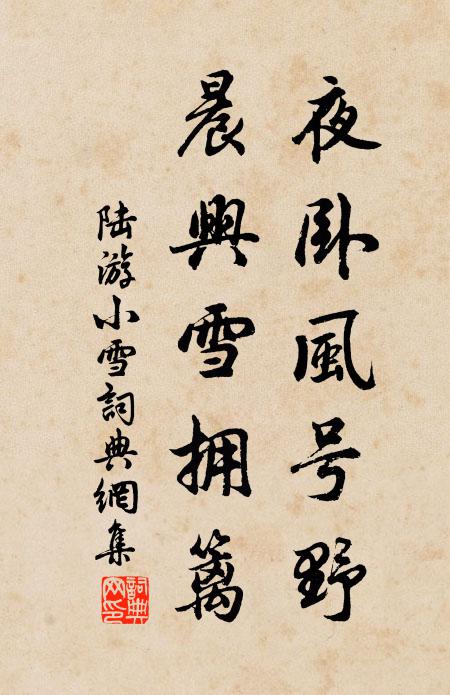 夜卧風号野
晨興雪拥籬
陆游小雪詞典網集
詞典
网印